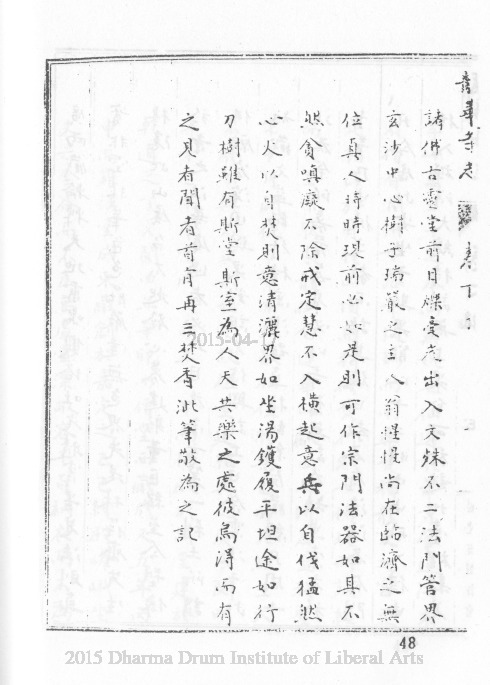 諸佛古靈堂前日牒受虎出入文殊不二法門管界
玄沙中心樹子瑞巖之主人翁惺惺尚在臨濟之無
位真人時時現前必如是則可作宗門法器如其不
然貪嗔癡不除戒定慧不入橫起意兵以自伐猛然
心火以自焚則意清灑界如坐湯鑊履平坦途如行
刀樹雖有斯堂斯室為人天共樂之處彼烏得而有
之見者聞者首肯再三焚香泚筆敬為之記
卷下
48
2015-04-17
2015 Dharma Drum Institute of Liberal Arts